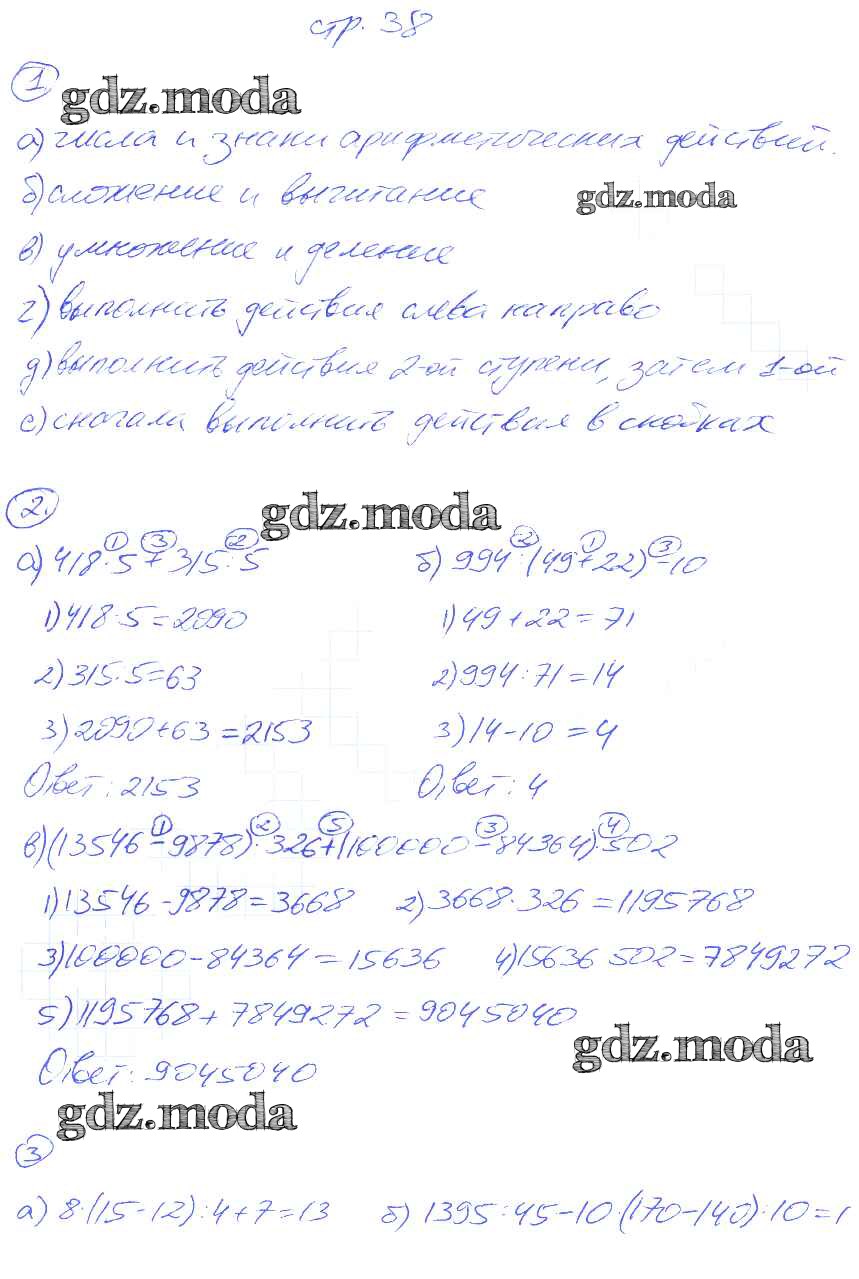 стр. 38
1
gdz.moda
а) числа и знаки арифметических действий.
б) сложение и вычитание
gdz.moda
в) умножение и деление
г) выполнить действия слева направо
д) выполнить действия 2-ой ступени, затем 1-ой
е) сначала выполнить действия в скобках
2.
gdz.moda
1 3 2
а) 418·5+315:5
2 1 3
б) 994:(49+22)-10
1) 418·5=2090
1) 49+22=71
2) 315·5=63
2) 994:71=14
3) 2090+63=2153
3) 14-10=4
Ответ: 2153
Ответ: 4
1 2 5 3 4
в) (13546-9878)·326+(100000-84364)·502
1) 13546-9878=3668 2) 3668·326=1195768
3) 100000-84364=15636 4) 15636 502=7849272
5) 1195768+7849272=9045040
gdz.moda
Ответ: 9045040
gdz.moda
3
а) 8·(15-12):4+7=13 б) 1395:45-10·(170-140):10=1